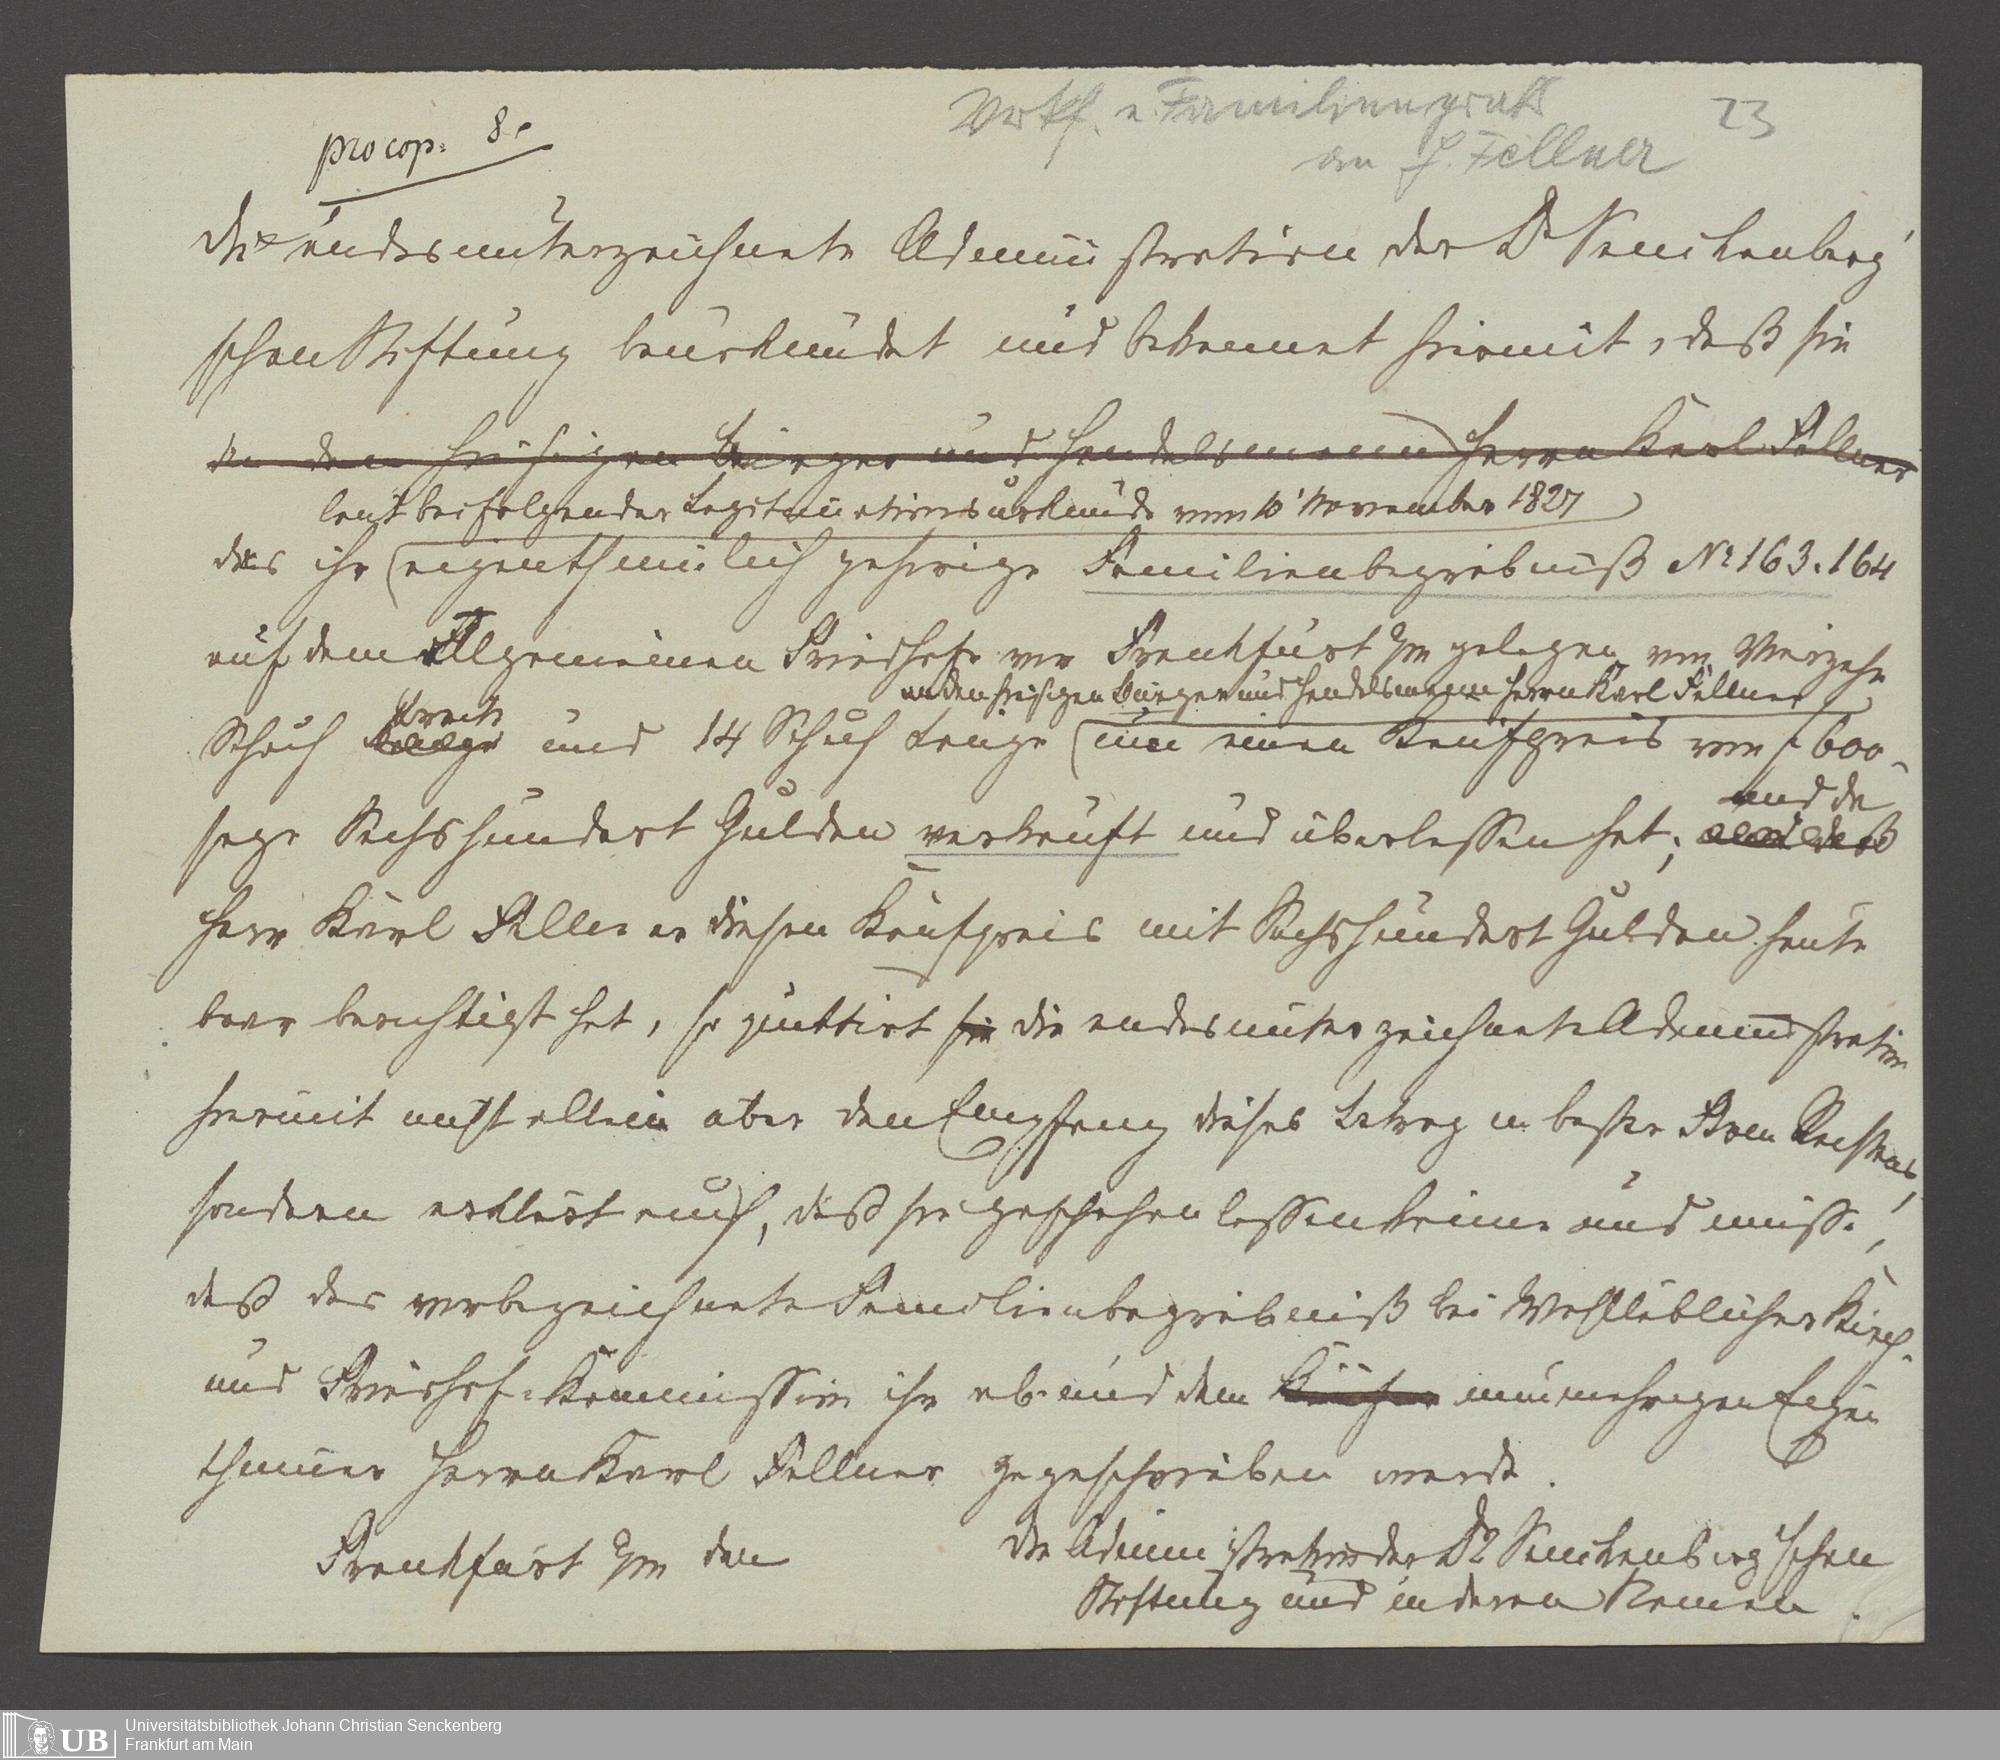 Verkf. e. Familiengrab 23
an H. Fellner
pro cop. 8.
Die endesunterzeichnete Administration der Dr Senckenberg'
schen Stiftung beurkundet und bekennet hiermit, daß sie
an den hiesigen Bürger und Handelsmann Herrn Karl Fellner
laut beifolgender Legitimationsurkunde vom 10' November 1827
das ihr eigenthümlich gehörige Familienbegräbniß No 163. 164
auf dem Allgemeinen Friedhofe vor Frankfurt a/m gelegen von Vierzehn
an den hiesigen Bürger und Handelsmann Herrn Karl Fellner
Schuh Breite und 14 Schuh Länge um einen Kaufpreis von f 600
sage Sechshundert Gulden verkauft und überlassen hat; und da
Herr Karl Fellner diesen Kaufpreis mit Sechshundert Gulden heute
baar berichtigt hat, so quittirt sie die endesunterzeichnete Administration
hiermit nicht allein über den Empfang dieses Betrag in bester Form Rechtens,
sondern erklärt auch, daß sie geschehen lassen könne und müsse,
daß das vorbezeichnete Familienbegräbniß bei Wohllöblicher Kirch-
und Friedhof-Kommission ihr ab- und dem Käufer nunmehrigen Eigen
thümer Herrn Karl Fellner zugeschrieben werde.
Frankfurt a/m den
Die Administration der Dr Senckenberg'schen
Stiftung und in deren Namen.
UB Universitätsbibliothek Johann Christian Senckenberg
Frankfurt am Main